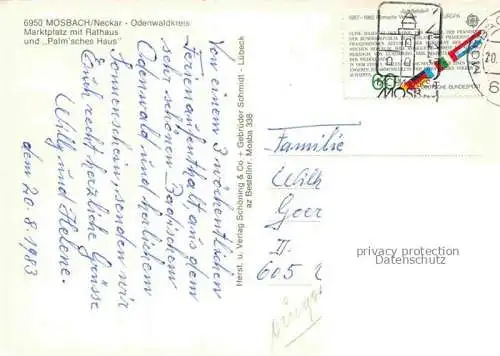 6950 MOSBACH/Neckar - Odenwaldkreis
Marktplatz mit Rathaus
und „Palm'sches Haus"
Von einem 3 wöchentlichen
Ferienaufenthalt aus dem
sehr schönen Badischem
Odenwald und herlichem
Sonnenschein, senden wir
Euch recht herzliche Grüsse
Willy und Helene.
dem 20.8.1983
Herst. u. Verlag Schöning & Co + Gebrüder Schmidt - Lübeck
az Bestellnr. Mosba 338
EUROPA
60
DEUTSCHE BUNDESPOST
MOSB
20.
6
Familie
Wilh
Geer
II.
605
privacy protection
Datenschutz